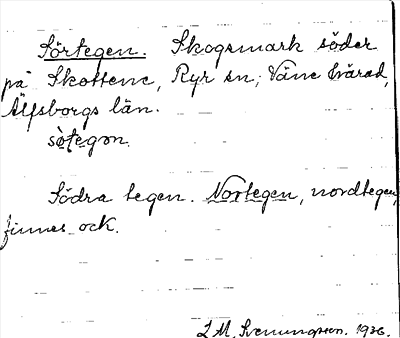 Sörtegen. Skogsmark söder
på Skottene, Ryr sn, Väne härad,
Älfsborgs län.
sö̀tegən.
Södra tegen. Nortegen, nordtegen,
finnes ock.
L M, Svenungsson. 1936.